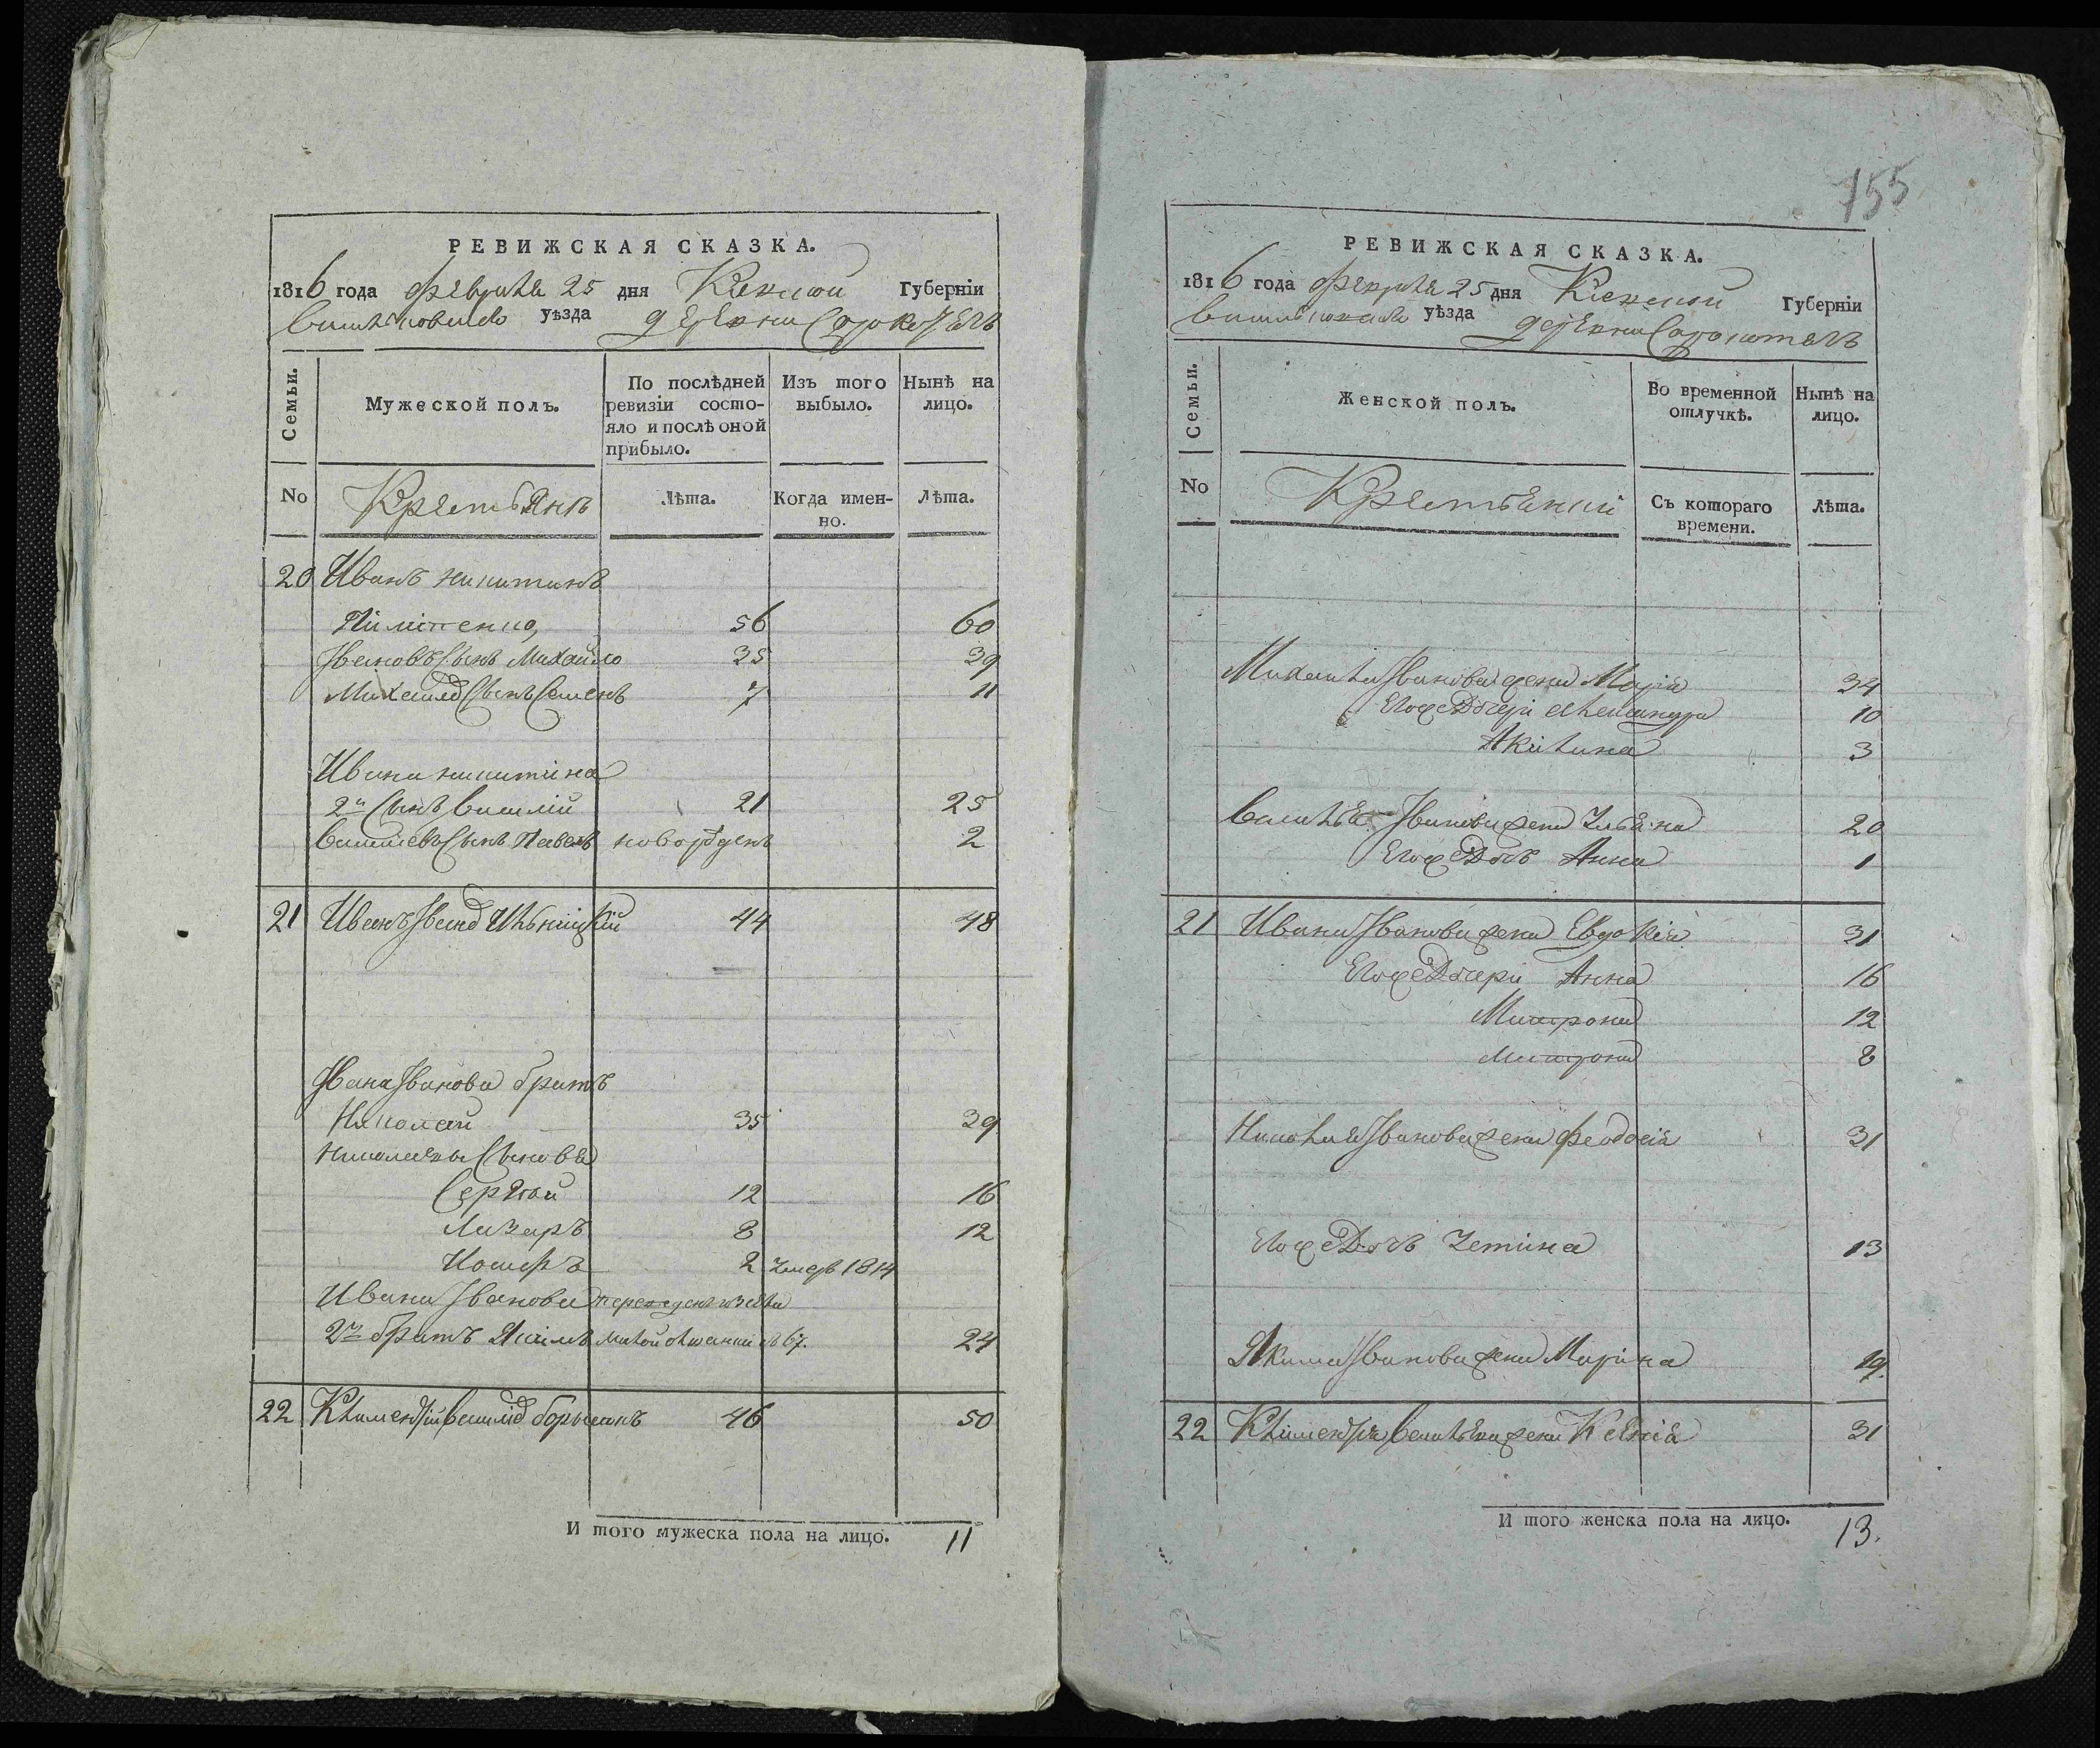 РЕВИЖСКАЯ СКАЗКА.
1816 года февраля 25 дня Киевской Губерніи
Васильковскаго уѣзда деревни Сорокотягъ
Семьи.
Мужеской полъ.
По послѣдней ревизіи состояло и послѣ оной прибыло.
Изъ того выбыло.
Нынѣ на лицо.
No
Крестьянъ
Лѣта.
Когда именно.
Лѣта.
20 Иванъ Никитинъ
56 60
Ивановъ Сынъ Михайло 35 39
Михайлов Сынъ Семенъ 7 11
Ивана Никитина
2й Сынъ Василій 21 25
Васильевъ Сынъ Павелъ новорожденъ 2
21 Иванъ Иванов Ильницкій 44 48
Ивана Иванова братъ
Николай 35 39
Николаевы Сыновья
Сергей 12 16
Лазаръ 8 12
Иосифъ 2 умер 1814
Ивана Иванова
2й братъ Якимъ 24
22 Климентій Василів 46 50
И того мужеска пола на лицо. 11
755
РЕВИЖСКАЯ СКАЗКА.
1816 года февраля 25 дня Киевской Губерніи
Васильковскаго уѣзда деревни
Семьи.
Женской полъ.
Во временной отлучкѣ.
Нынѣ на лицо.
No
Крестьянки
Съ котораго времени.
Лѣта.
Михаила Иванова жена Марія 34
Егоже Дочери Александра 10
Акилина 3
Василья Иванова жена Ульяна 20
Егоже Дочь Анна 1
21 Ивана Иванова жена Евдокія 31
Егоже Дочери Анна 16
Матрона 12
Матрона 8
Николая Иванова жена Феодосія 31
Егоже Дочь 13
Якима Иванова жена Марина 19
22 Климентія Васильева жена Ксенія 31
И того женска пола на лицо. 13.